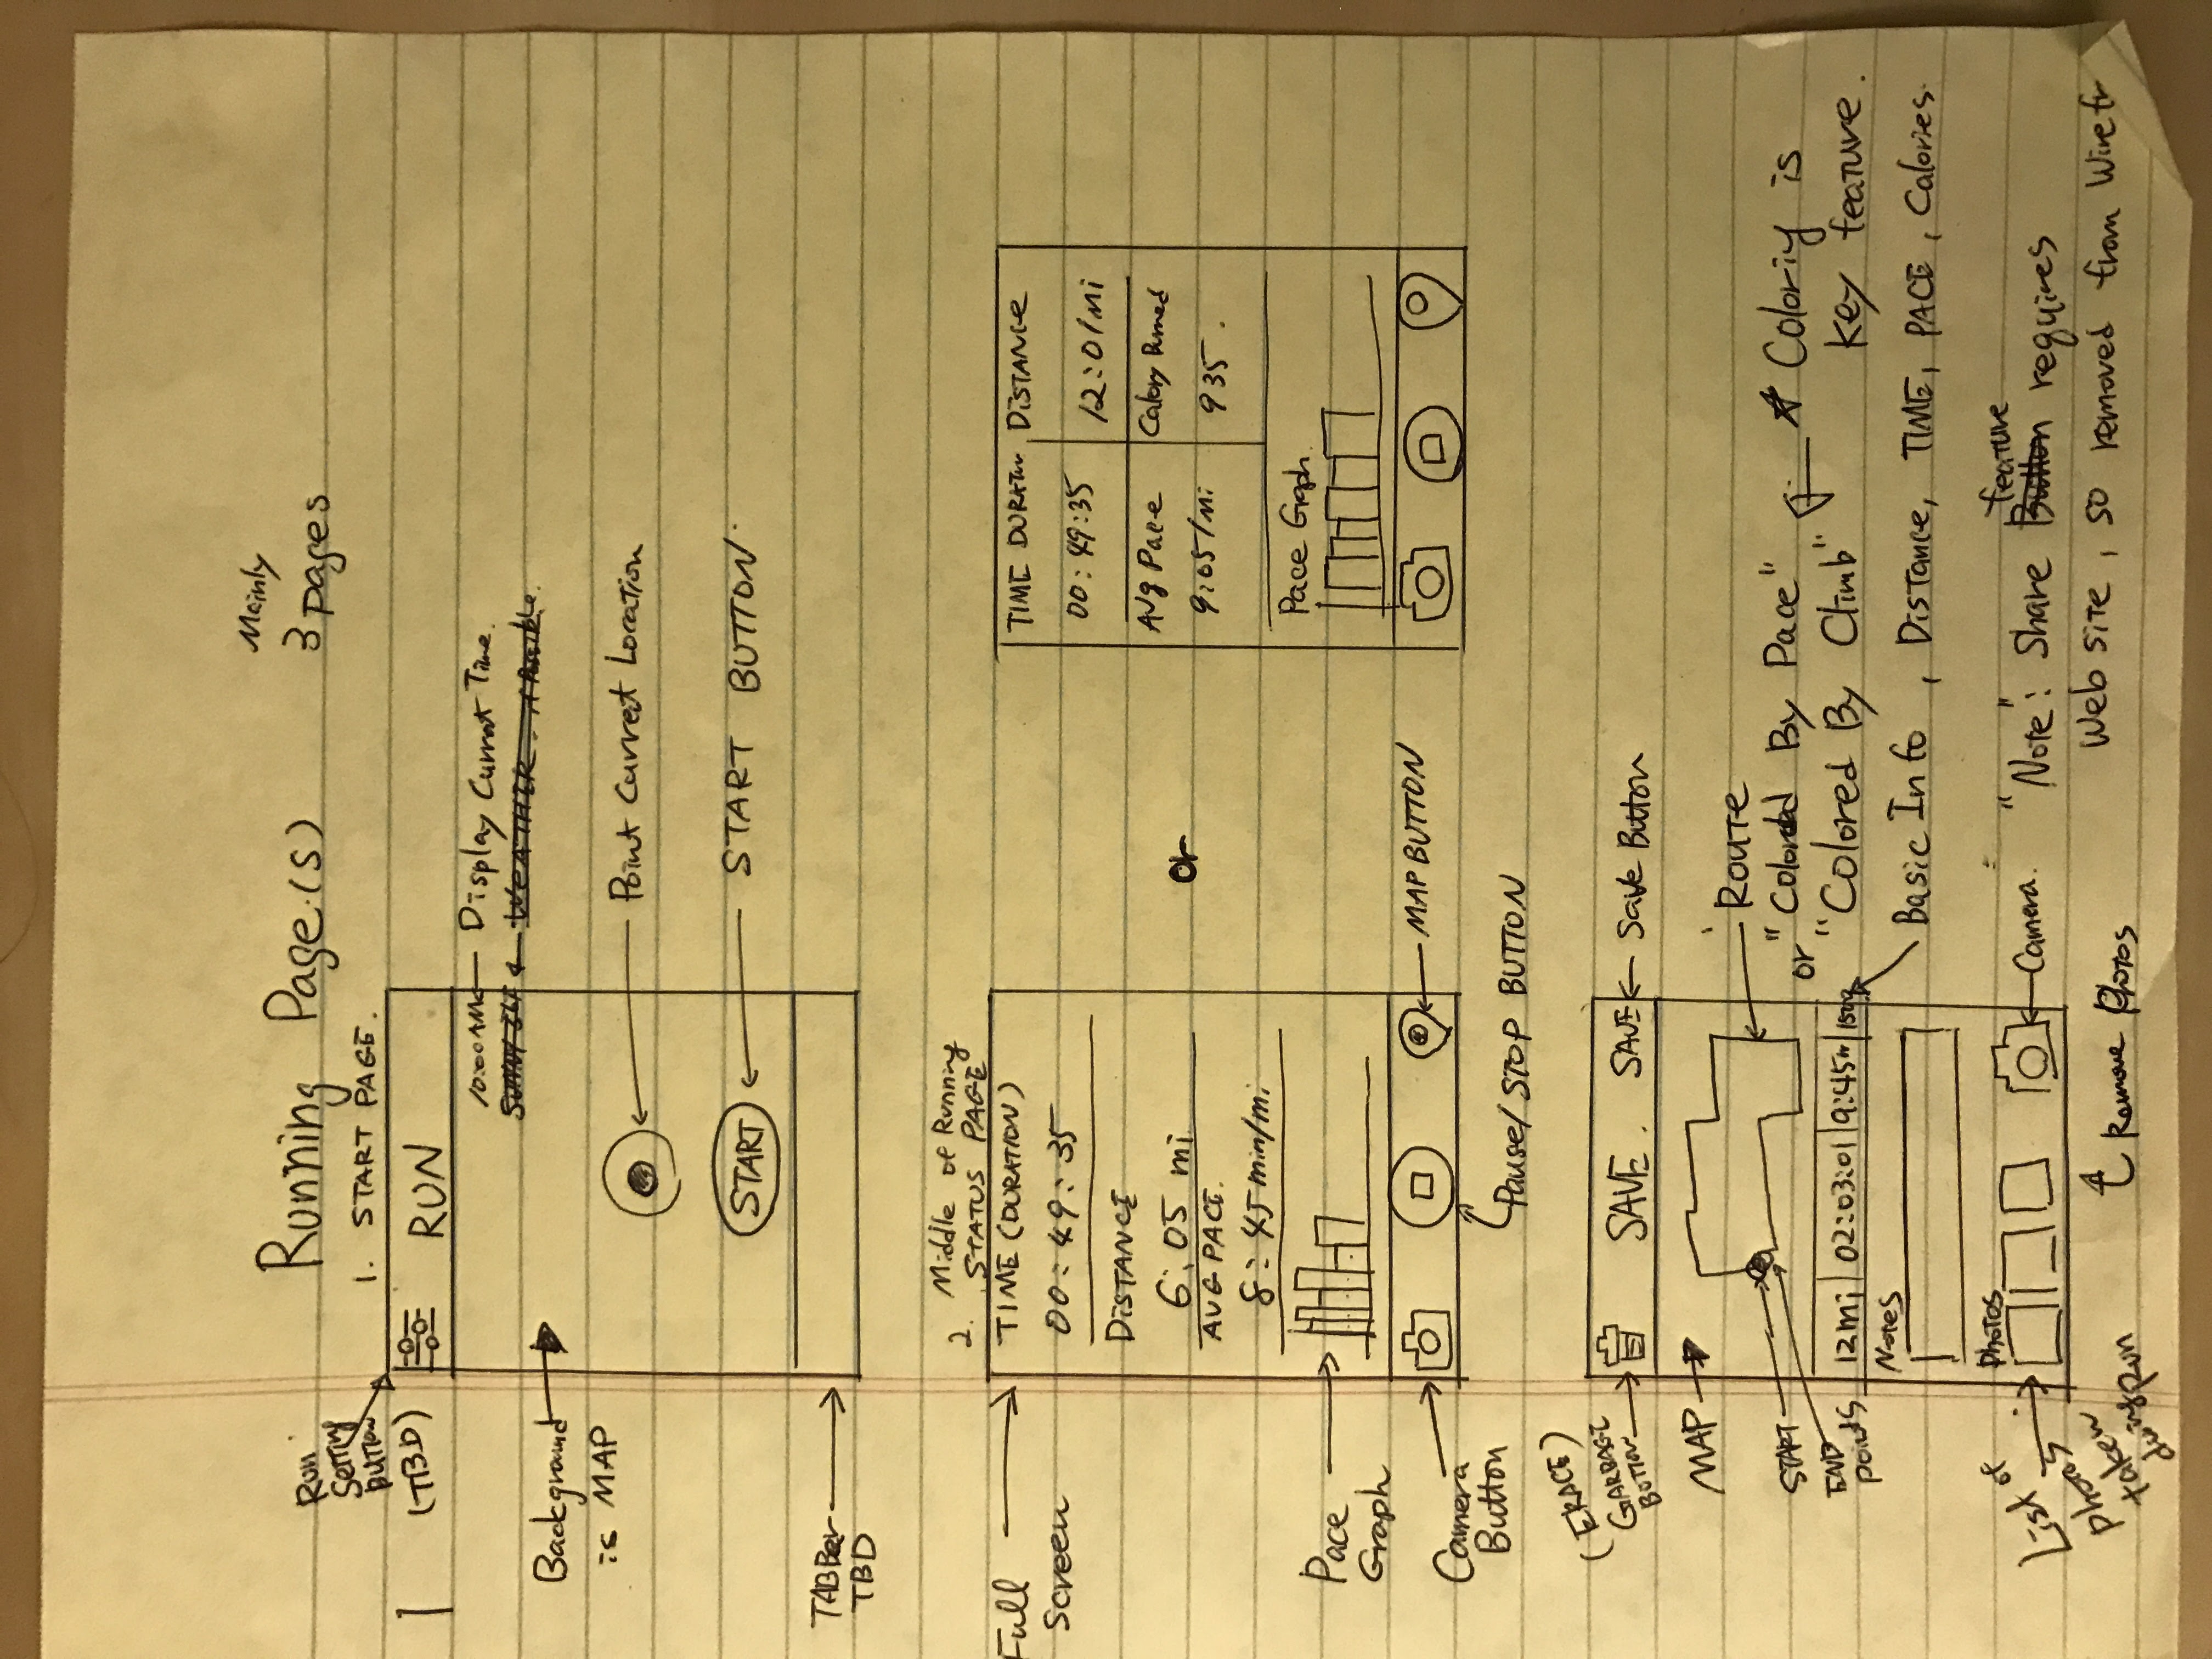 Running Page.(s)
Mainly
3 pages
Run
Setting
Button
(TBD)
1. START PAGE.
RUN
10:00AM
Display Current Time.
SUNNY
WEATHER. if Possible.
Background
is MAP
Point Current Location
START
START BUTTON
TABBar
TBD
2. Middle of Running
STATUS PAGE
Full
Screen
TIME (DURATION)
00:49:35
DISTANCE
6:05 mi
AVG PACE.
8:45 min/mi
Pace
Graph
Camera
Button
MAP BUTTON
Pause/STOP BUTTON
or
TIME DURATION
DISTANCE
00:49:35
12:01mi
Avg Pace
Calory Burned
9:05/mi
935.
Pace Graph.
(ERACE)
GARBAGE
BUTTON
SAVE.
SAVE
Save Button
MAP
START
END
points
ROUTE
or "Colored By Pace"
"Colored By Climb"
Coloriy is
key feature.
12mi
02:03:01
9:45m
Basic Info, Distance, TIME, PACE, Calories.
Notes
Photos
List of
photos
taken
during Run
Camera.
Remove Photos
"Note": Share Button feature requires
Web site, so removed from Wirefr